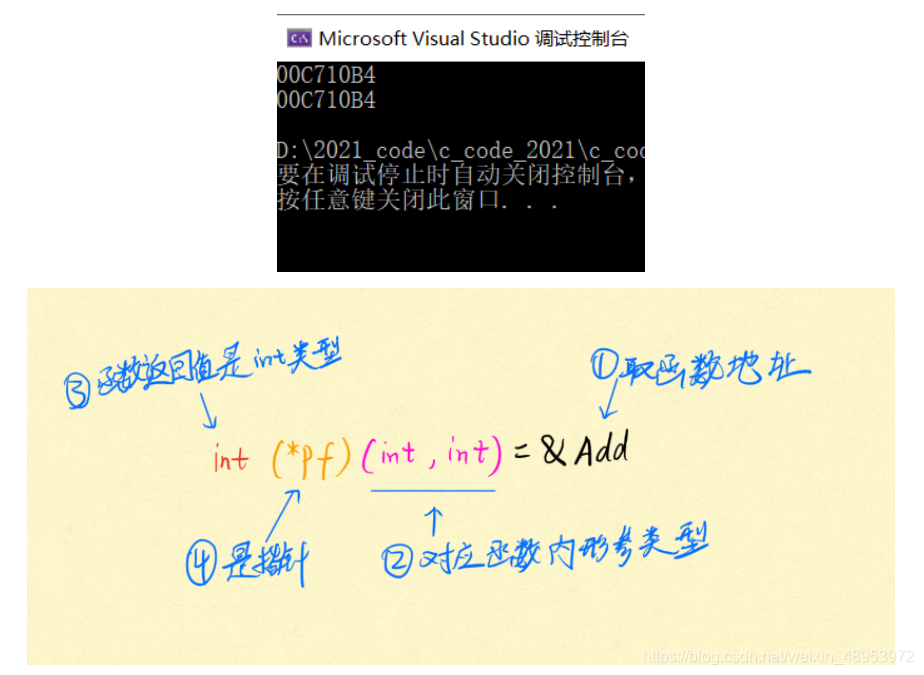 Microsoft Visual Studio 调试控制台
00C710B4
00C710B4
D:\2021_code\c_code_2021\c_coc
要在调试停止时自动关闭控制台，
按任意键关闭此窗口. . .
③函数返回值是int类型
①取函数地址
int (*pf)(int , int) = &Add
④是指针
②对应函数内形参类型
https://blog.csdn.net/weixin_48953972